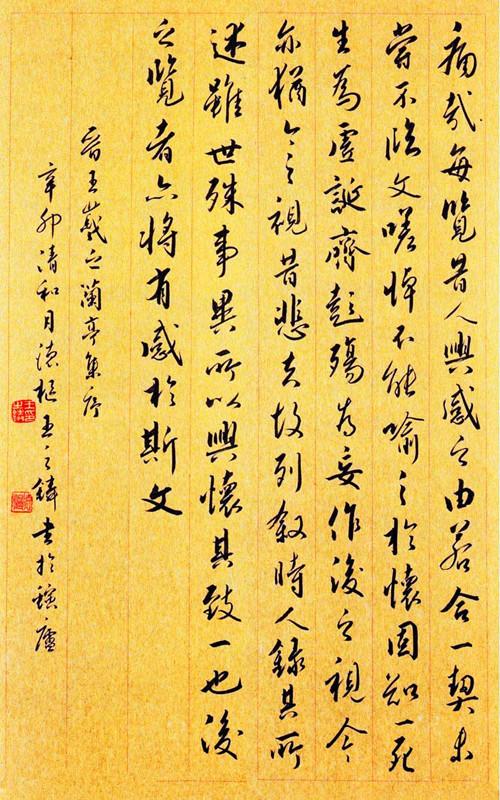 痛哉每覽昔人興感之由若合一契未
嘗不臨文嗟悼不能喻之於懷固知一死
生為虛誕齊彭殤為妄作後之視今
亦猶今之視昔悲夫故列敘時人錄其所
述雖世殊事異所以興懷其致一也後
之覽者亦將有感於斯文
晉王羲之蘭亭集序
辛卯清和月德樞王之書於廬